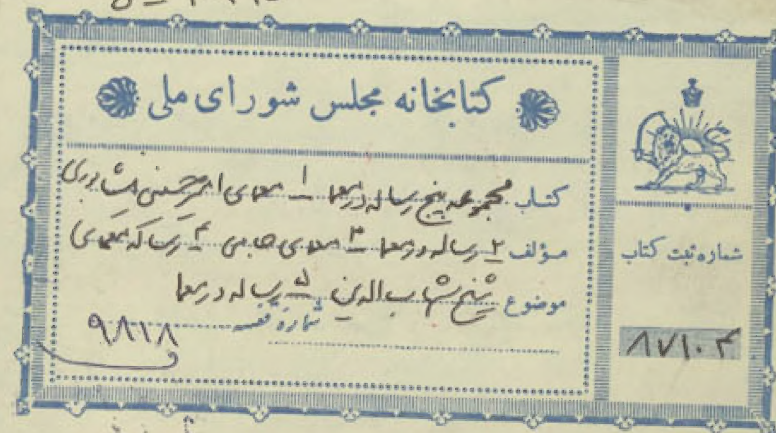 کتابخانه مجلس شورای ملی
کتاب مجموعه پنج رساله در معما ۱ معمای میر حسینی نیشابوری
مؤلف ۲ رساله در معما ۳ معمای جامی ۴ رساله معمای
موضوع شیخ شهاب الدین ۵ رساله در معما
شماره قفسه ۹۸۱۸
شماره ثبت کتاب
۸۷۱۰۴